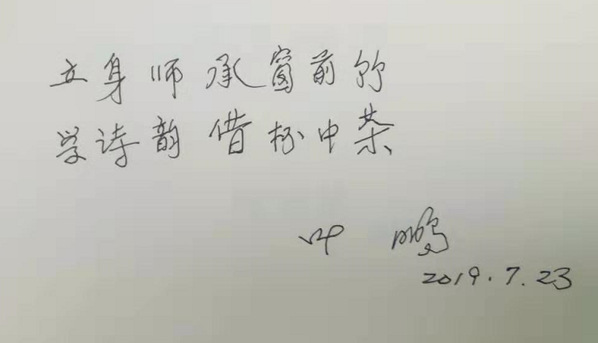 立身师承窗前竹
学诗韵借杯中茶
叶 鹏
2019.7.23